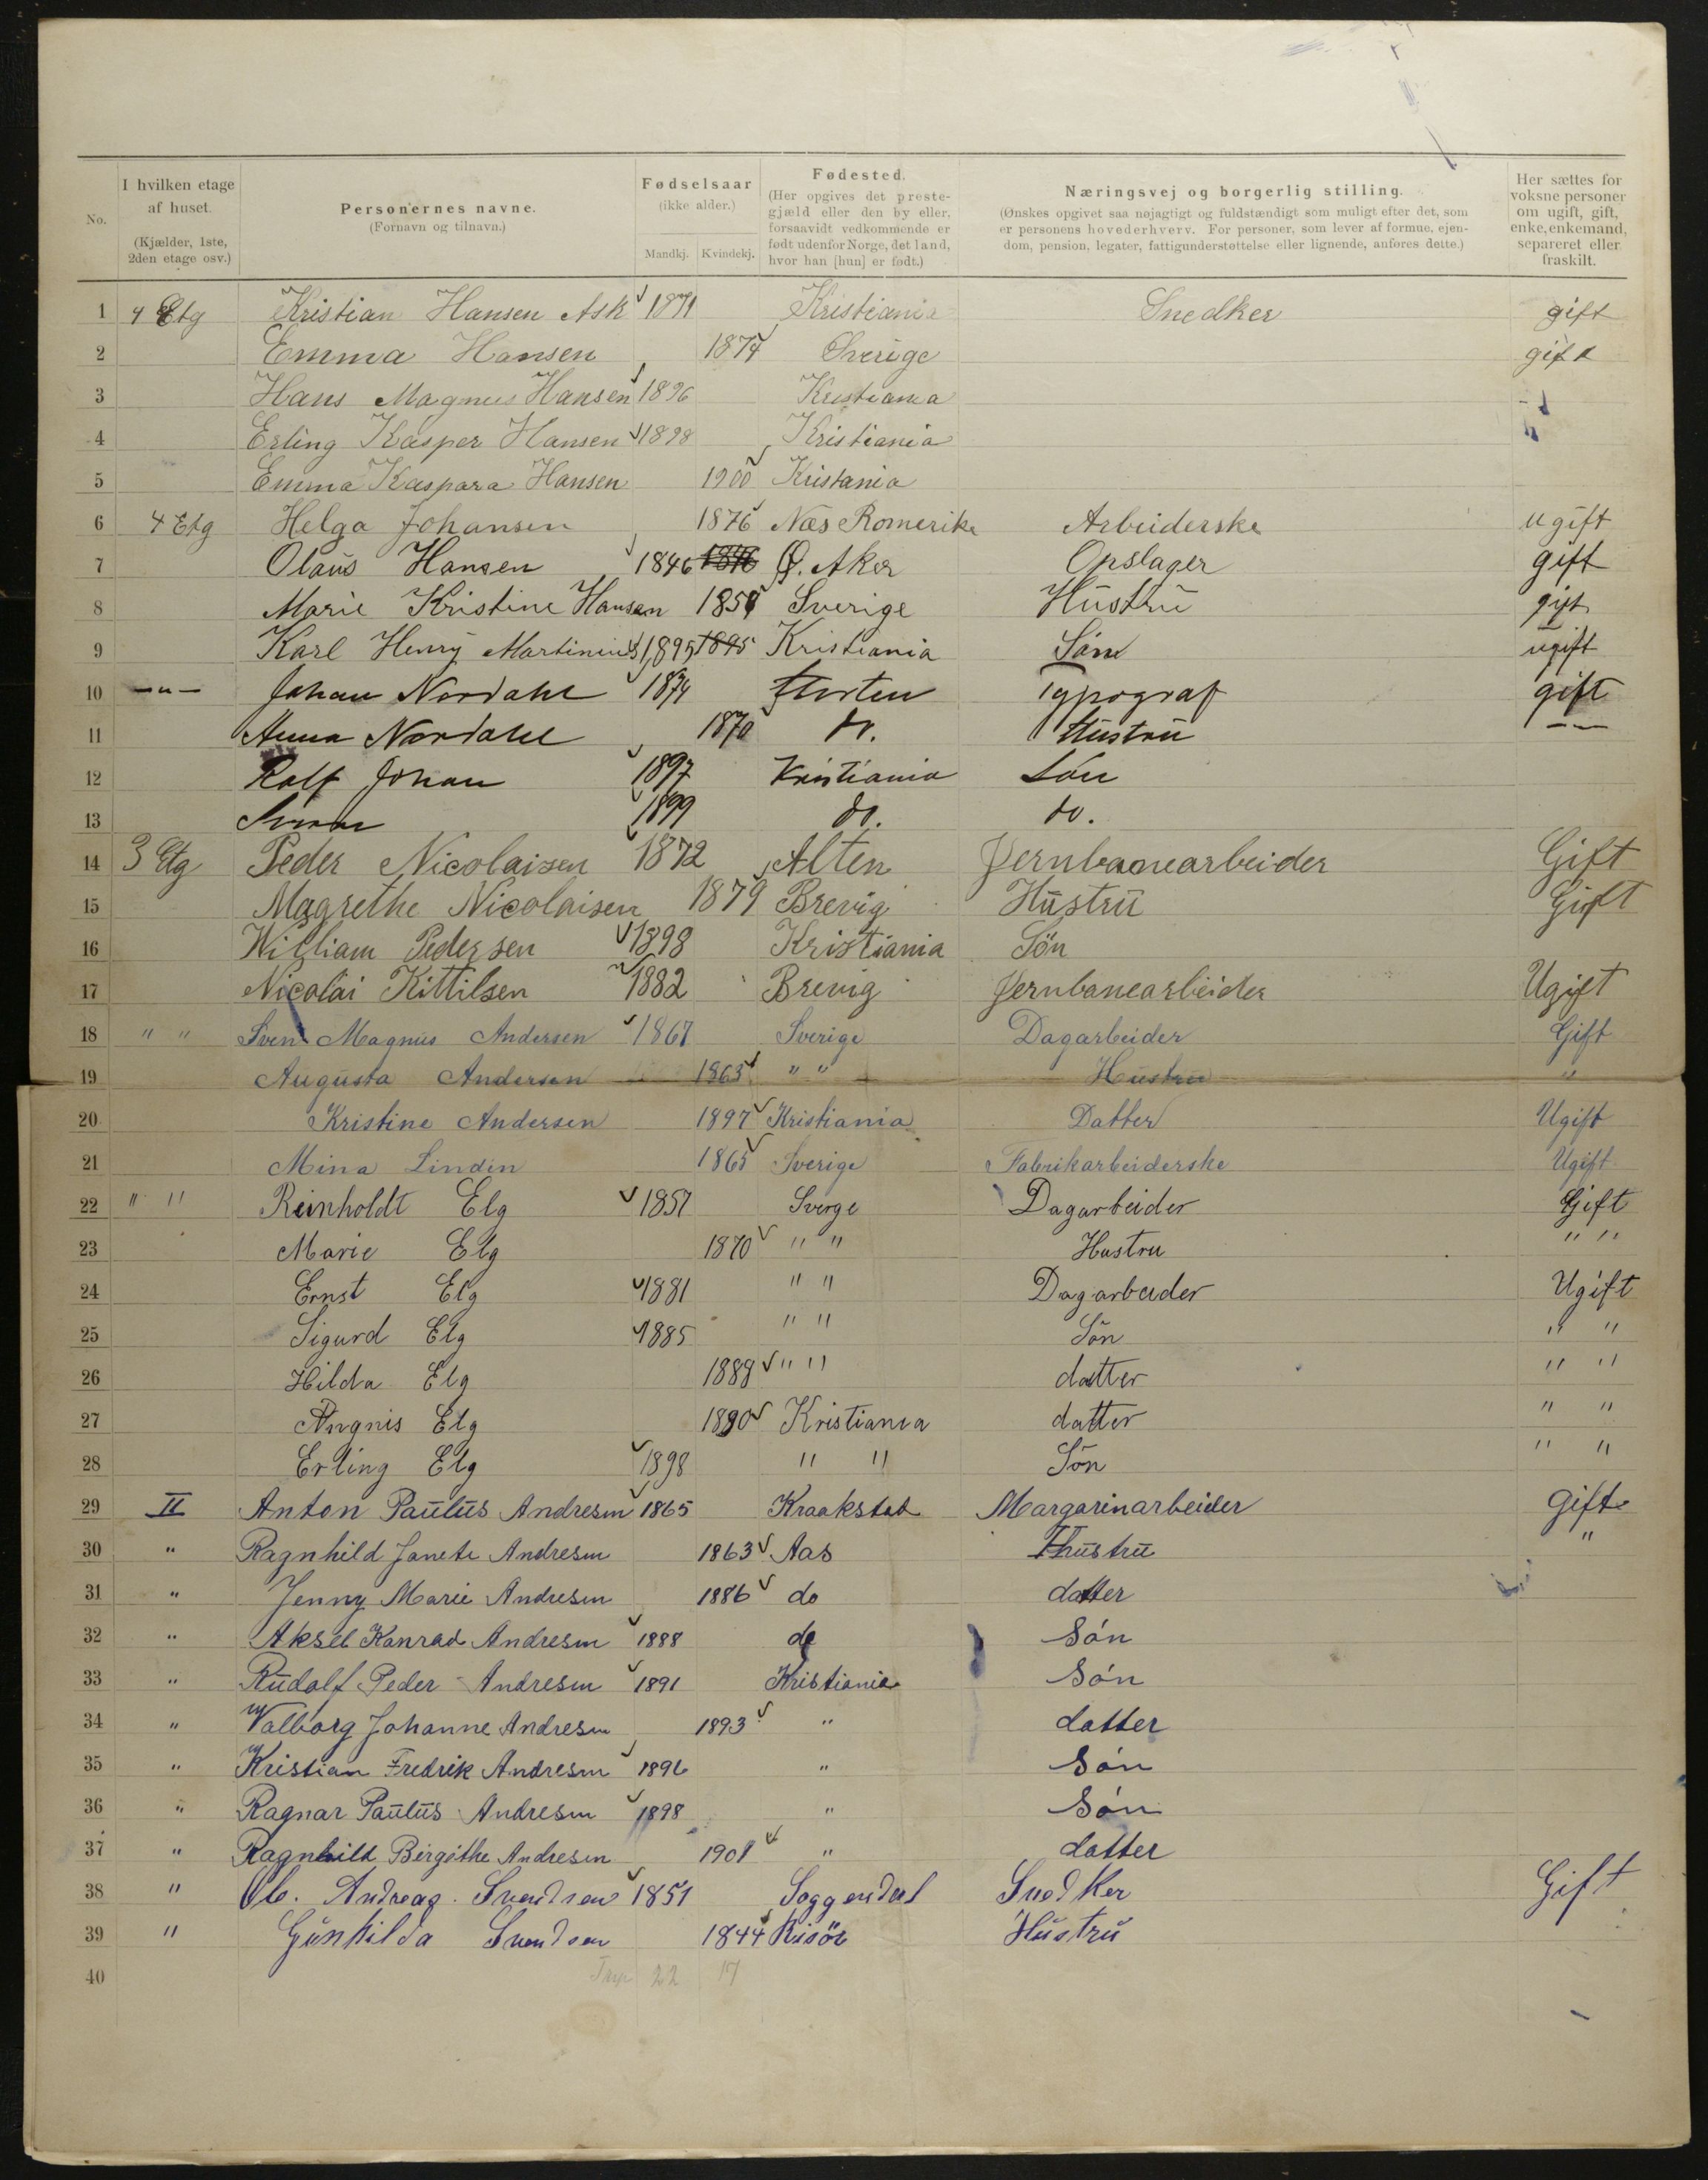 No.
I hvilken etage af huset. (Kjælder, 1ste, 2den etage osv.)
Personernes navne. (Fornavn og tilnavn.)
Fødselsaar (ikke alder.) Mandkj. Kvindekj.
Fødested. (Her opgives det prestegjæld eller den by eller, forsaavidt vedkommende er født udenfor Norge, det land, hvor han [hun] er født.)
Næringsvej og borgerlig stilling. (Ønskes opgivet saa nøjagtigt og fuldstændigt som muligt efter det, som er personens hovederhverv. For personer, som lever af formue, ejendom, pension, legater, fattigunderstøttelse eller lignende, anføres dette.)
Her sættes for voksne personer om ugift, gift, enke, enkemand, separeret eller fraskilt.
1 4 Etg Kristian Hansen Ask 1871 Kristiania Snedker gift
2 Emma Hansen 1874 Sverige gift
3 Hans Magnus Hansen 1896 Kristiania
4 Erling Kasper Hansen 1898 Kristiania
5 Emma Kaspara Hansen 1900 Kristania
6 4 Etg Helga Johansen 1876 Næs Romerike Arbeiderske ugift
7 Olaus Hansen 1846 1846 Ø. Aker Opslager gift
8 Marie Kristine Hansen Sverige Hustru gift
9 Karl Henry Martinius 1895 1895 Kristiania Søn ugift
10 —"— Johan Nordahl 1874 Horten Typograf gift
11 Anna Nordahl 1870 do. Hustru —"—
12 Rolf Johan 1897 Kristiania Søn
13 1899 do. do.
14 3 Etg Peder Nicolaisen 1872 Alten Jernbanearbeider Gift
15 Magrethe Nicolaisen 1879 Brevig Hustru Gift
16 William Pedersen 1898 Kristiania Søn
17 Nicolai Kittilsen 1882 Brevig Jernbanearbeider Ugift
18 " " Sven Magnus Andersen 1867 Sverige Dagarbeider Gift
19 Augusta Andersen 1863 " " Hustru "
20 Kristine Andersen 1897 Kristiania Datter Ugift
21 Mina Lindin 1865 Sverige Fabrikarbeiderske Ugift
22 " " Reinholdt Elg 1857 Sverge Dagarbeider Gift
23 Marie Elg 1870 " " Hustru " "
24 Ernst Elg 1881 " " Dagarbeider Ugift
25 Sigurd Elg 1885 " " Søn " "
26 Hilda Elg 1889 " " datter " "
27 Angnis Elg 1890 Kristiania datter " "
28 Erling Elg 1898 " " Søn " "
29 II Anton Paulus Andresen 1865 Kraakstad Margarinarbeider gift
30 " Ragnhild Janete Andresen 1863 Aas Hustru "
31 " Jenny Marie Andresen 1886 do datter
32 " Aksel Konrad Andresen 1888 do Søn
33 " Rudolf Peder Andresen 1891 Kristiania Søn
34 " Valborg Johanne Andresen 1893 " datter
35 " Kristian Fredrik Andresen 1896 " Søn
36 " Ragnar Paulus Andresen 1898 " Søn
37 " Ragnhild Birgithe Andresen 1901 " datter
38 " Ole. Andreas. Svendsen 1851 Soggendal Snedker Gift
39 " Gunhilda Svendsen 1844 Risör Hustru
40 22 17